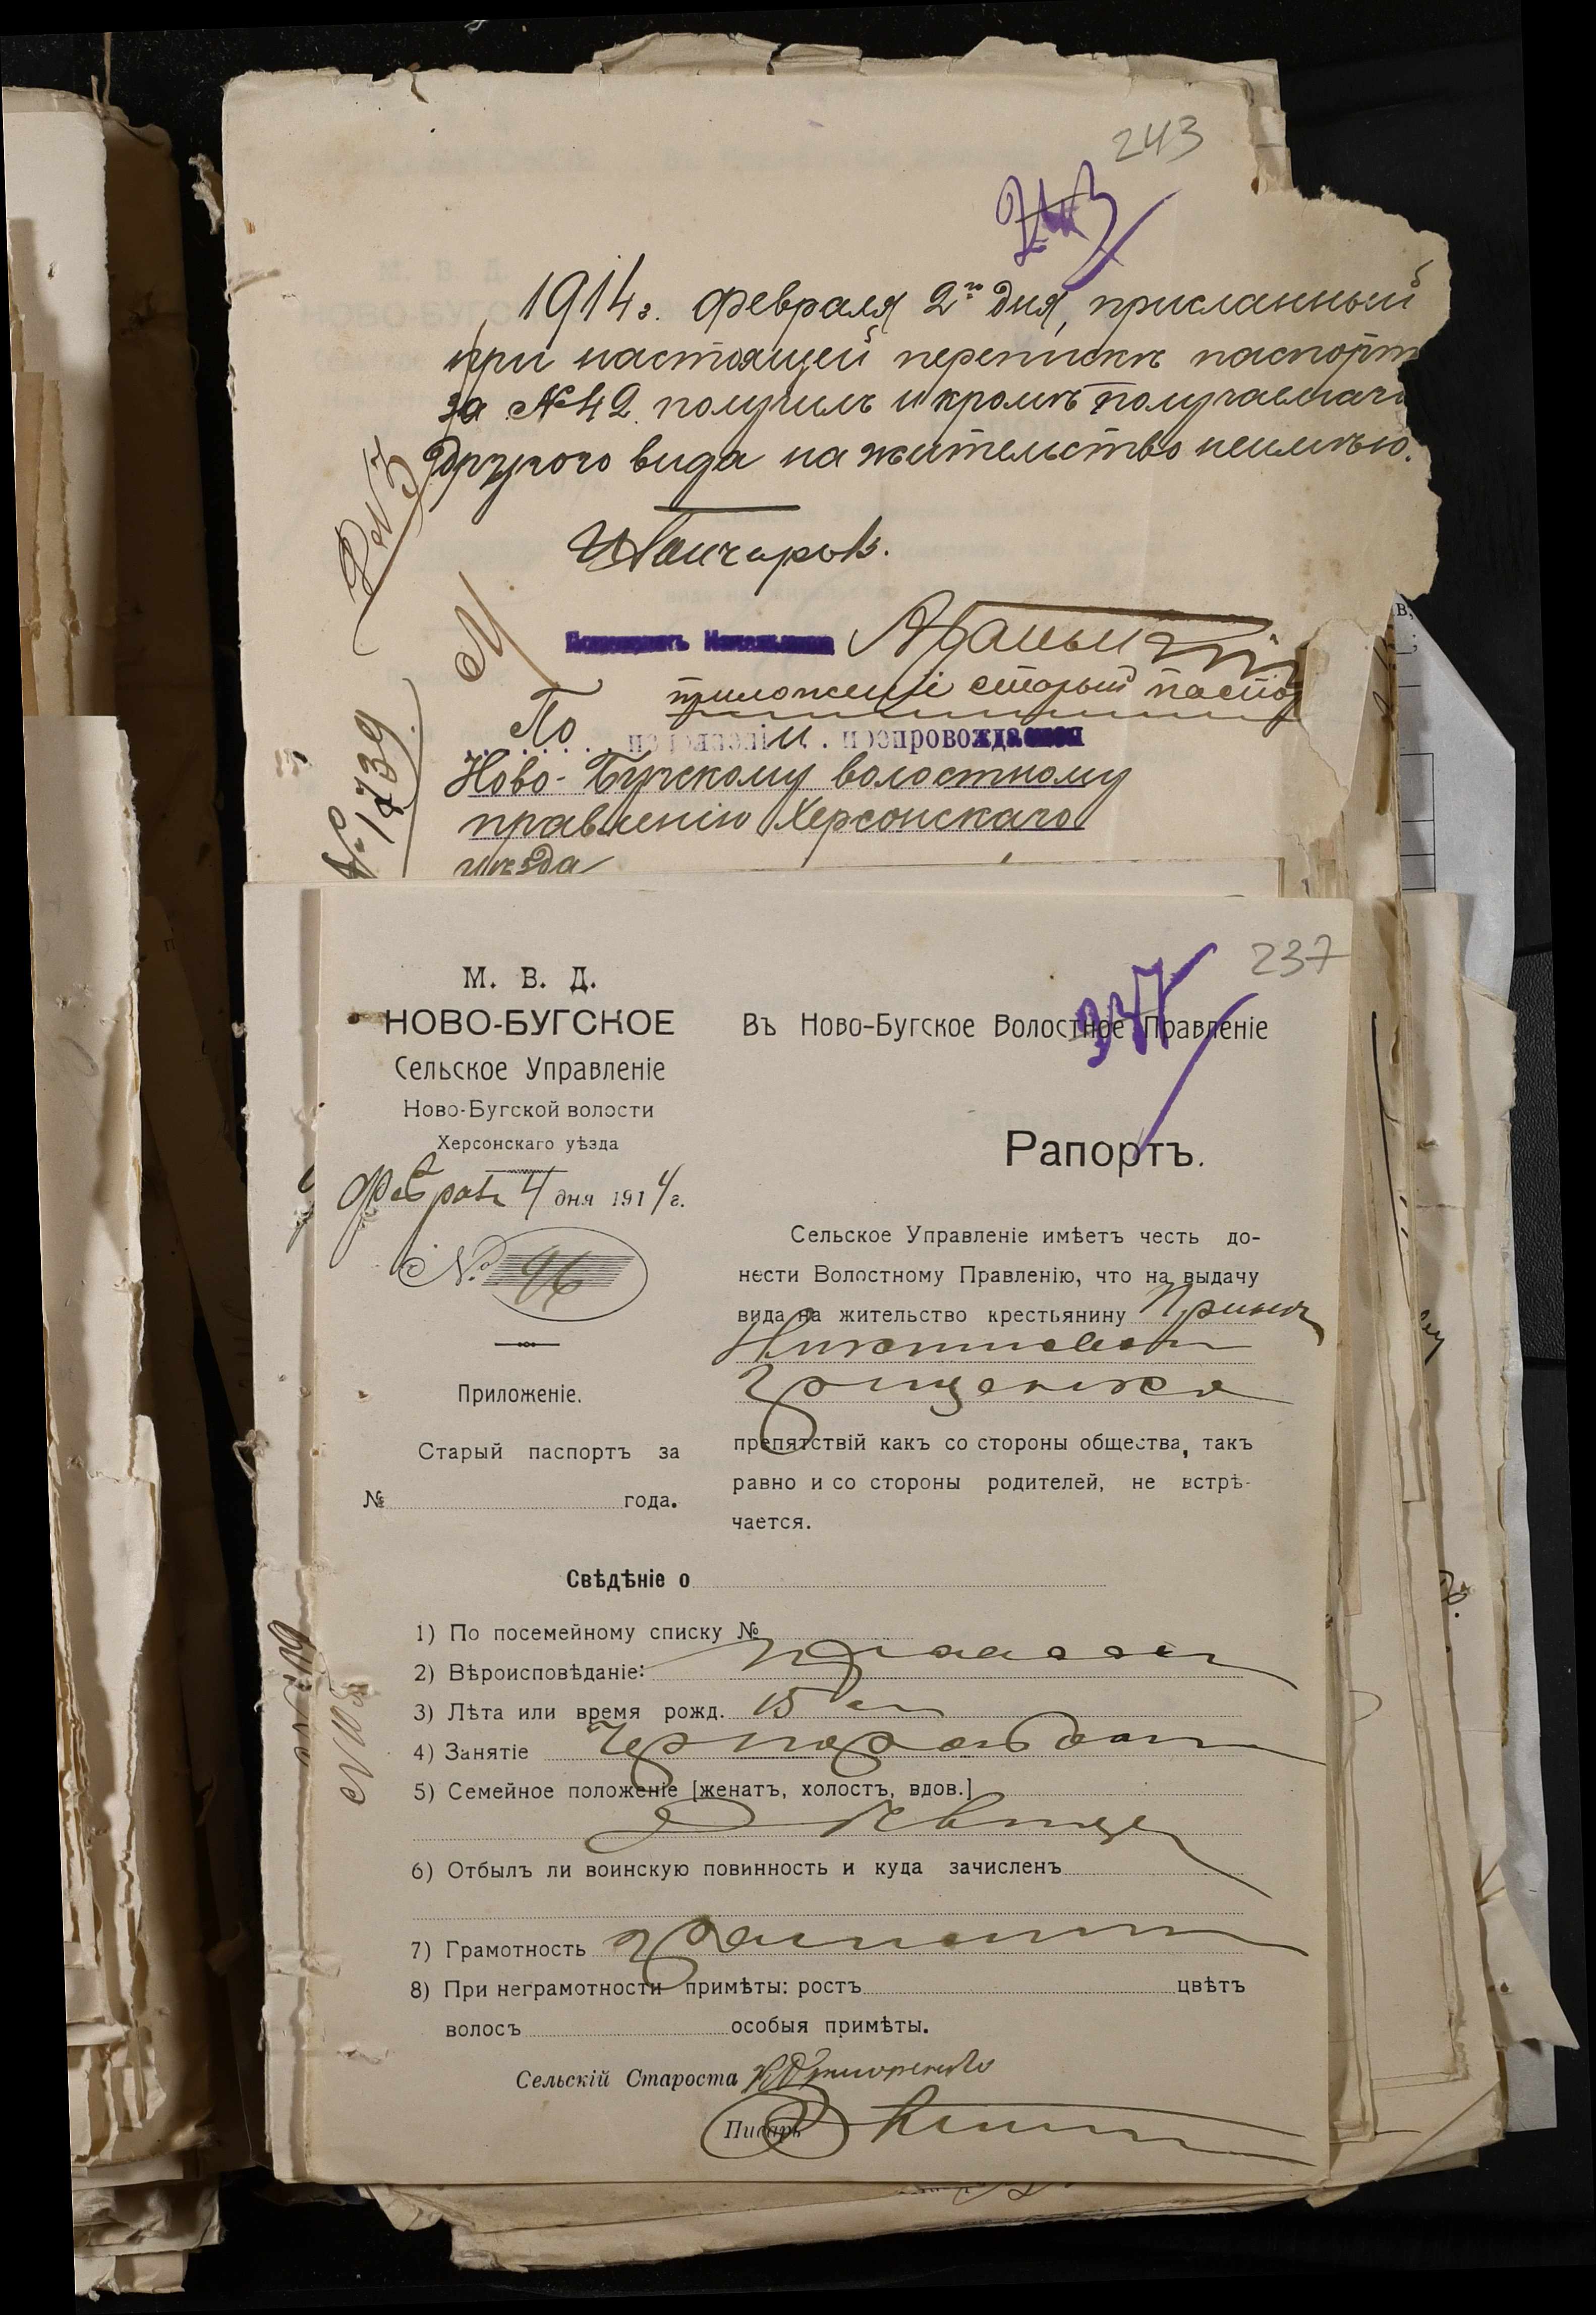 243
243
1914 г. февраля 2го дня, присланный
при настоящей перепискѣ паспорт
за № 42 получилъ и кромѣ получаемаго
другого вида на жительство неимѣю.
По
приложеніе старый паспо
препровождается
Ново-Бугскому волостному
правленію Херсонскаго
уѣзда
№ 1739
237
М. В. Д.
НОВО-БУГСКОЕ
Сельское Управленіе
Ново-Бугской волости
Херсонскаго уѣзда
Февраля 4 дня 1914 г.
№ 96
Приложеніе.
Старый паспортъ за
№ года.
Въ Ново-Бугское Волостное Правленіе
Рапортъ.
Сельское Управленіе имѣетъ честь до-
нести Волостному Правленію, что на выдачу
вида на жительство крестьянину
Грищенко
препятствій какъ со стороны общества, такъ
равно и со стороны родителей, не встрѣ-
чается.
Свѣдѣніе о
1) По посемейному списку №
2) Вѣроисповѣданіе: Правосл
3) Лѣта или время рожд. 15 л
4) Занятіе Чернораб
5) Семейное положеніе [женатъ, холостъ, вдов.]
Дѣвица
6) Отбылъ ли воинскую повинность и куда зачисленъ
7) Грамотность Грамотн
8) При неграмотности примѣты: ростъ цвѣтъ
волосъ особыя примѣты.
Сельскій Староста
Писарь